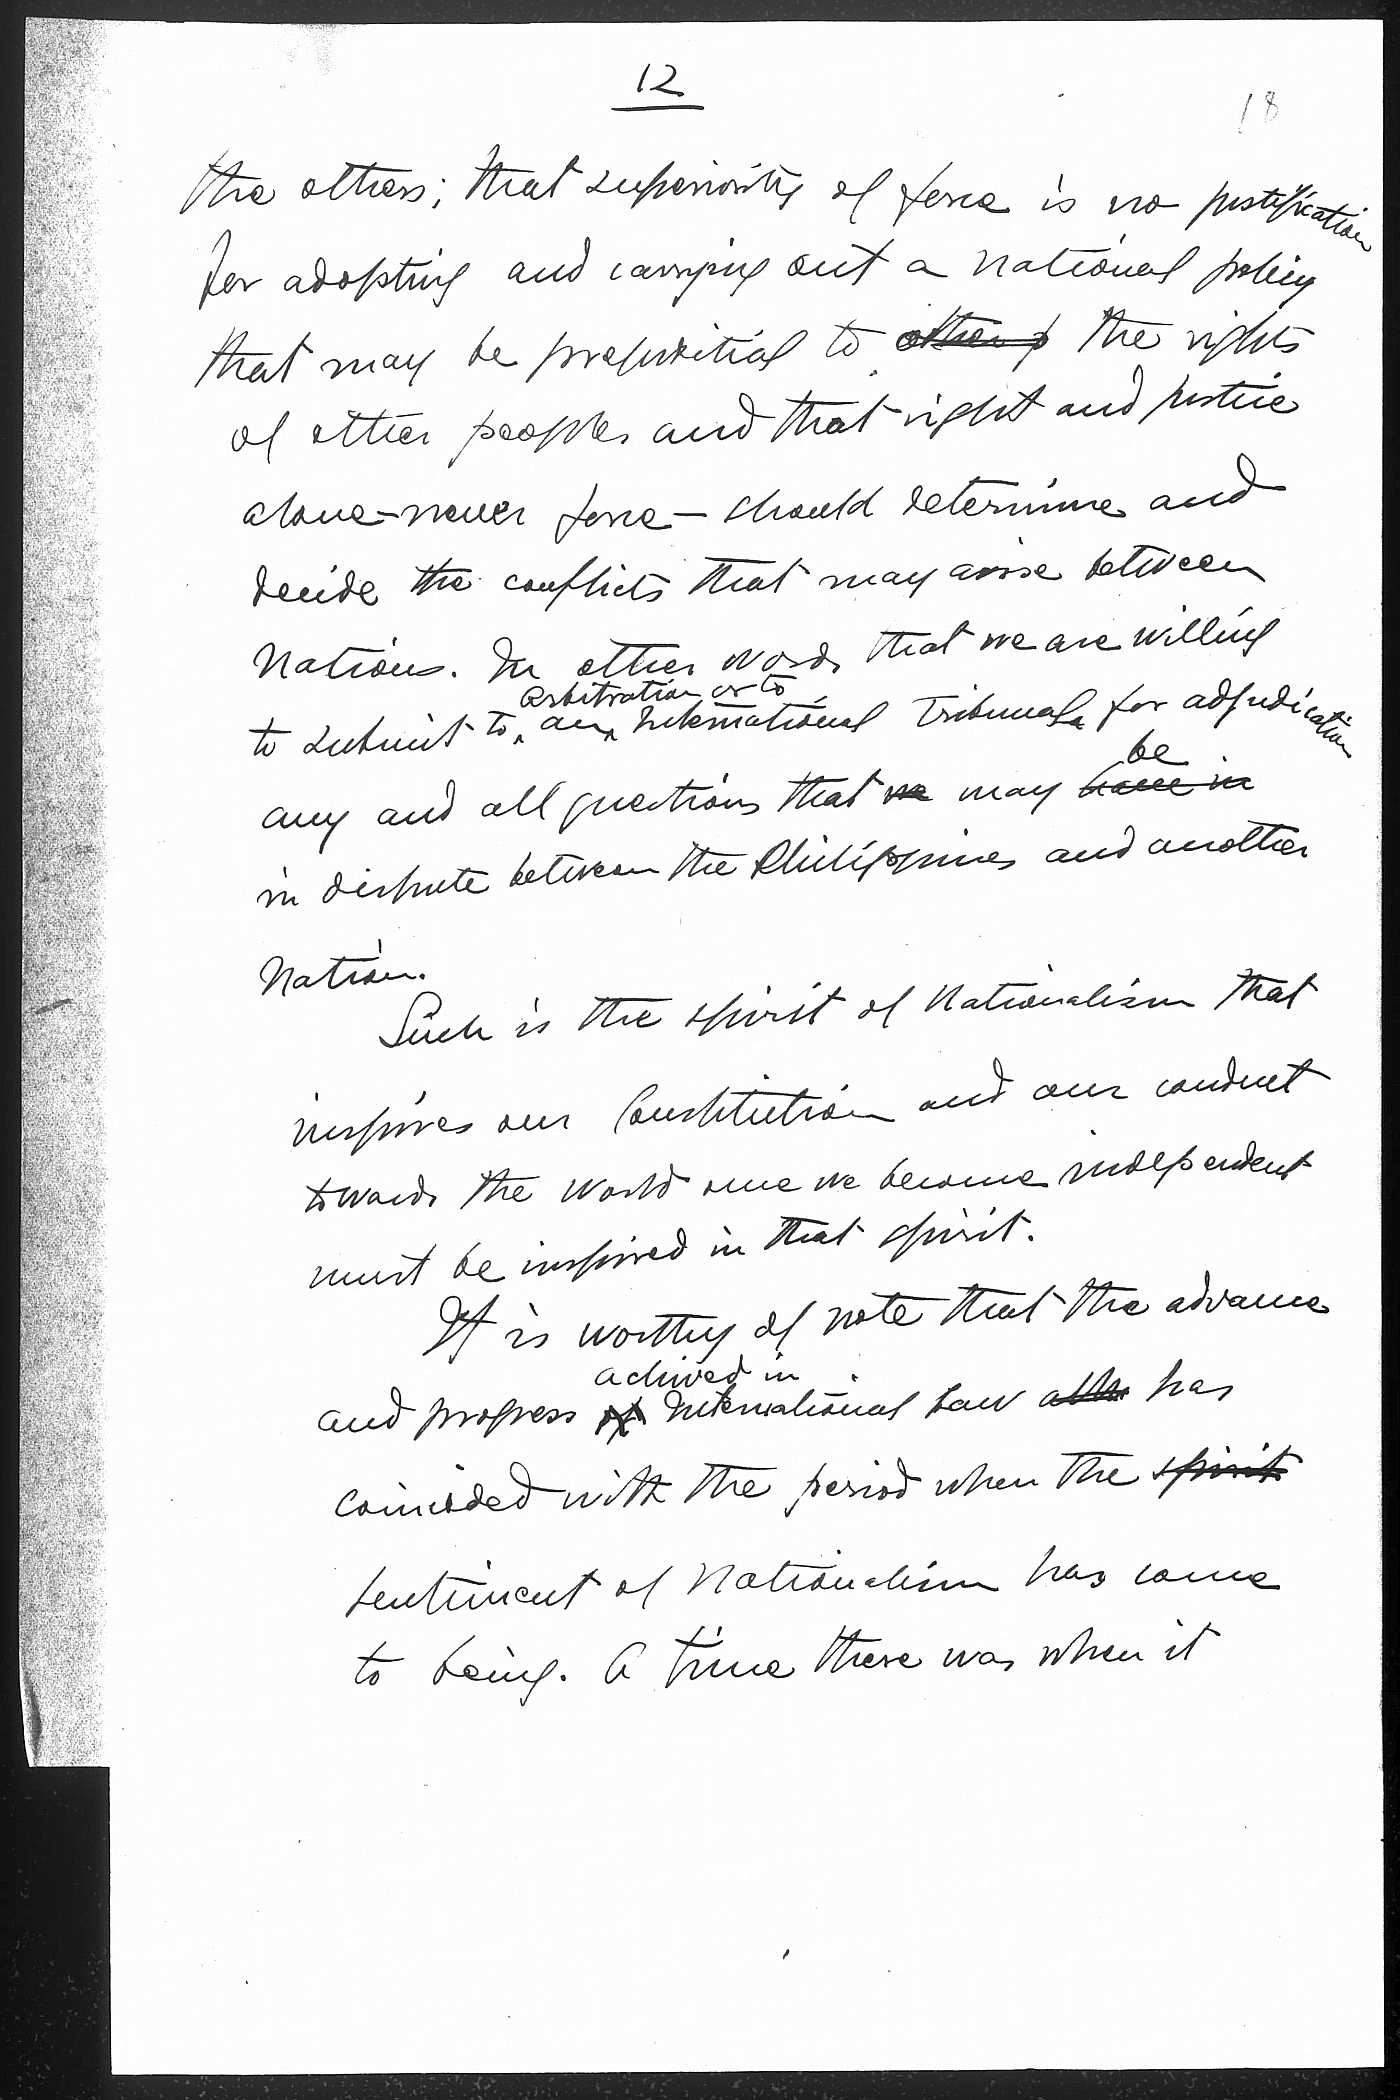 12
18
the others; that superiority of force is no justification
for adopting and carrying out a national policy
that may be prejuditial to other p the rights
of other peoples and that right and justice
alone - never force - should determine and
decide the conflicts that may arise between
Nations. In other words that we are willing
arbitration or to
to submit to an International Tribunal for adjudication
be
any and all questions that we may have in
in dispute between the Philippines and another
Nation.
Such is the spirit of Nationalism that
inspires our Constitution and our conduct
towards the World once we become independent
must be inspired in that spirit.
It is worthy of note that the advance
achived in
and progress of International Law has
coincided with the period when the spirit
sentiment of Nationalism has come
to being. A time there was when it